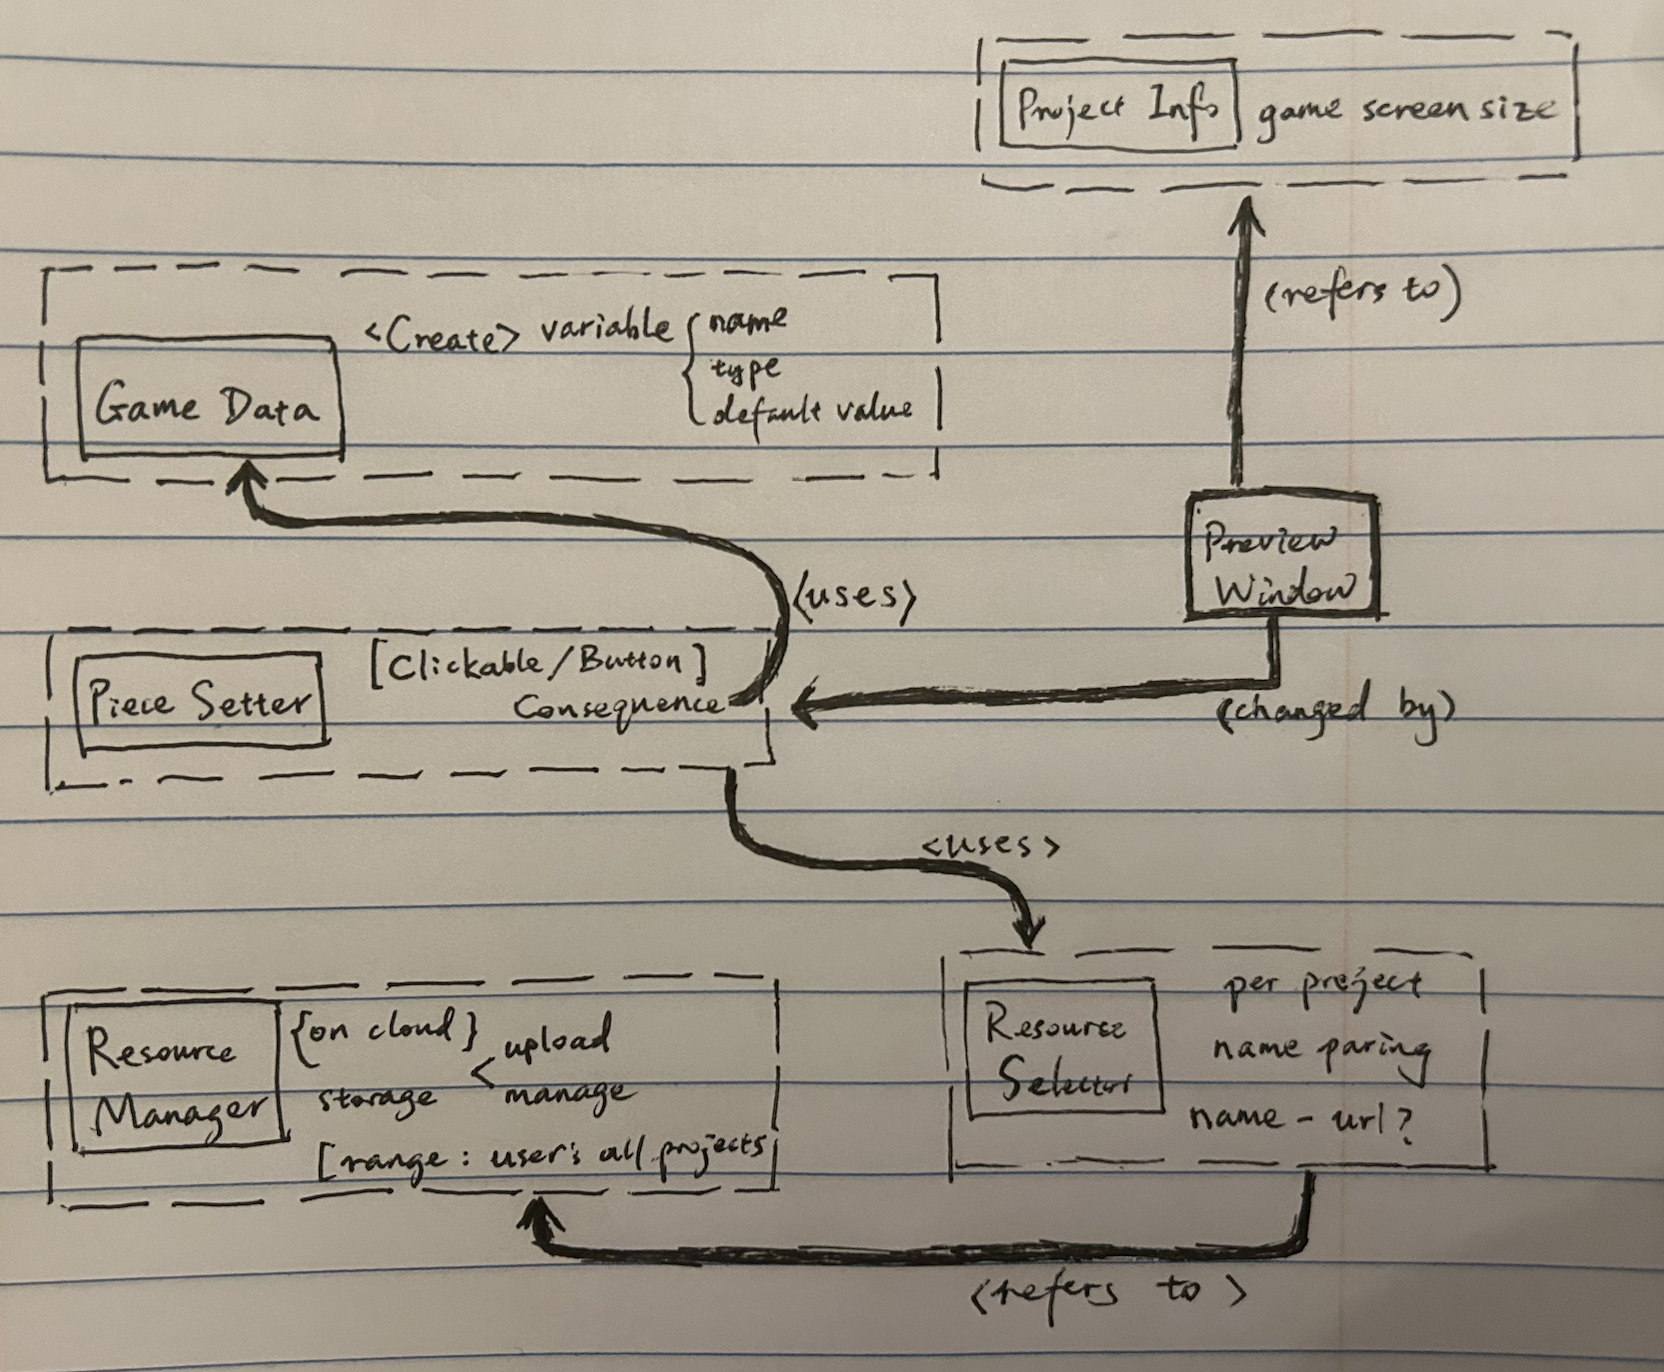 Project Info game screen size
(refers to)
<Create> variable { name
type
default value
Game Data
Preview
Window
<uses>
[Clickable/Button]
Piece Setter
Consequence
(changed by)
<uses>
Resource
Manager
{on cloud}
storage < upload
manage
[range: user's all projects
Resource
Selector
per project
name paring
name - url?
<refers to>